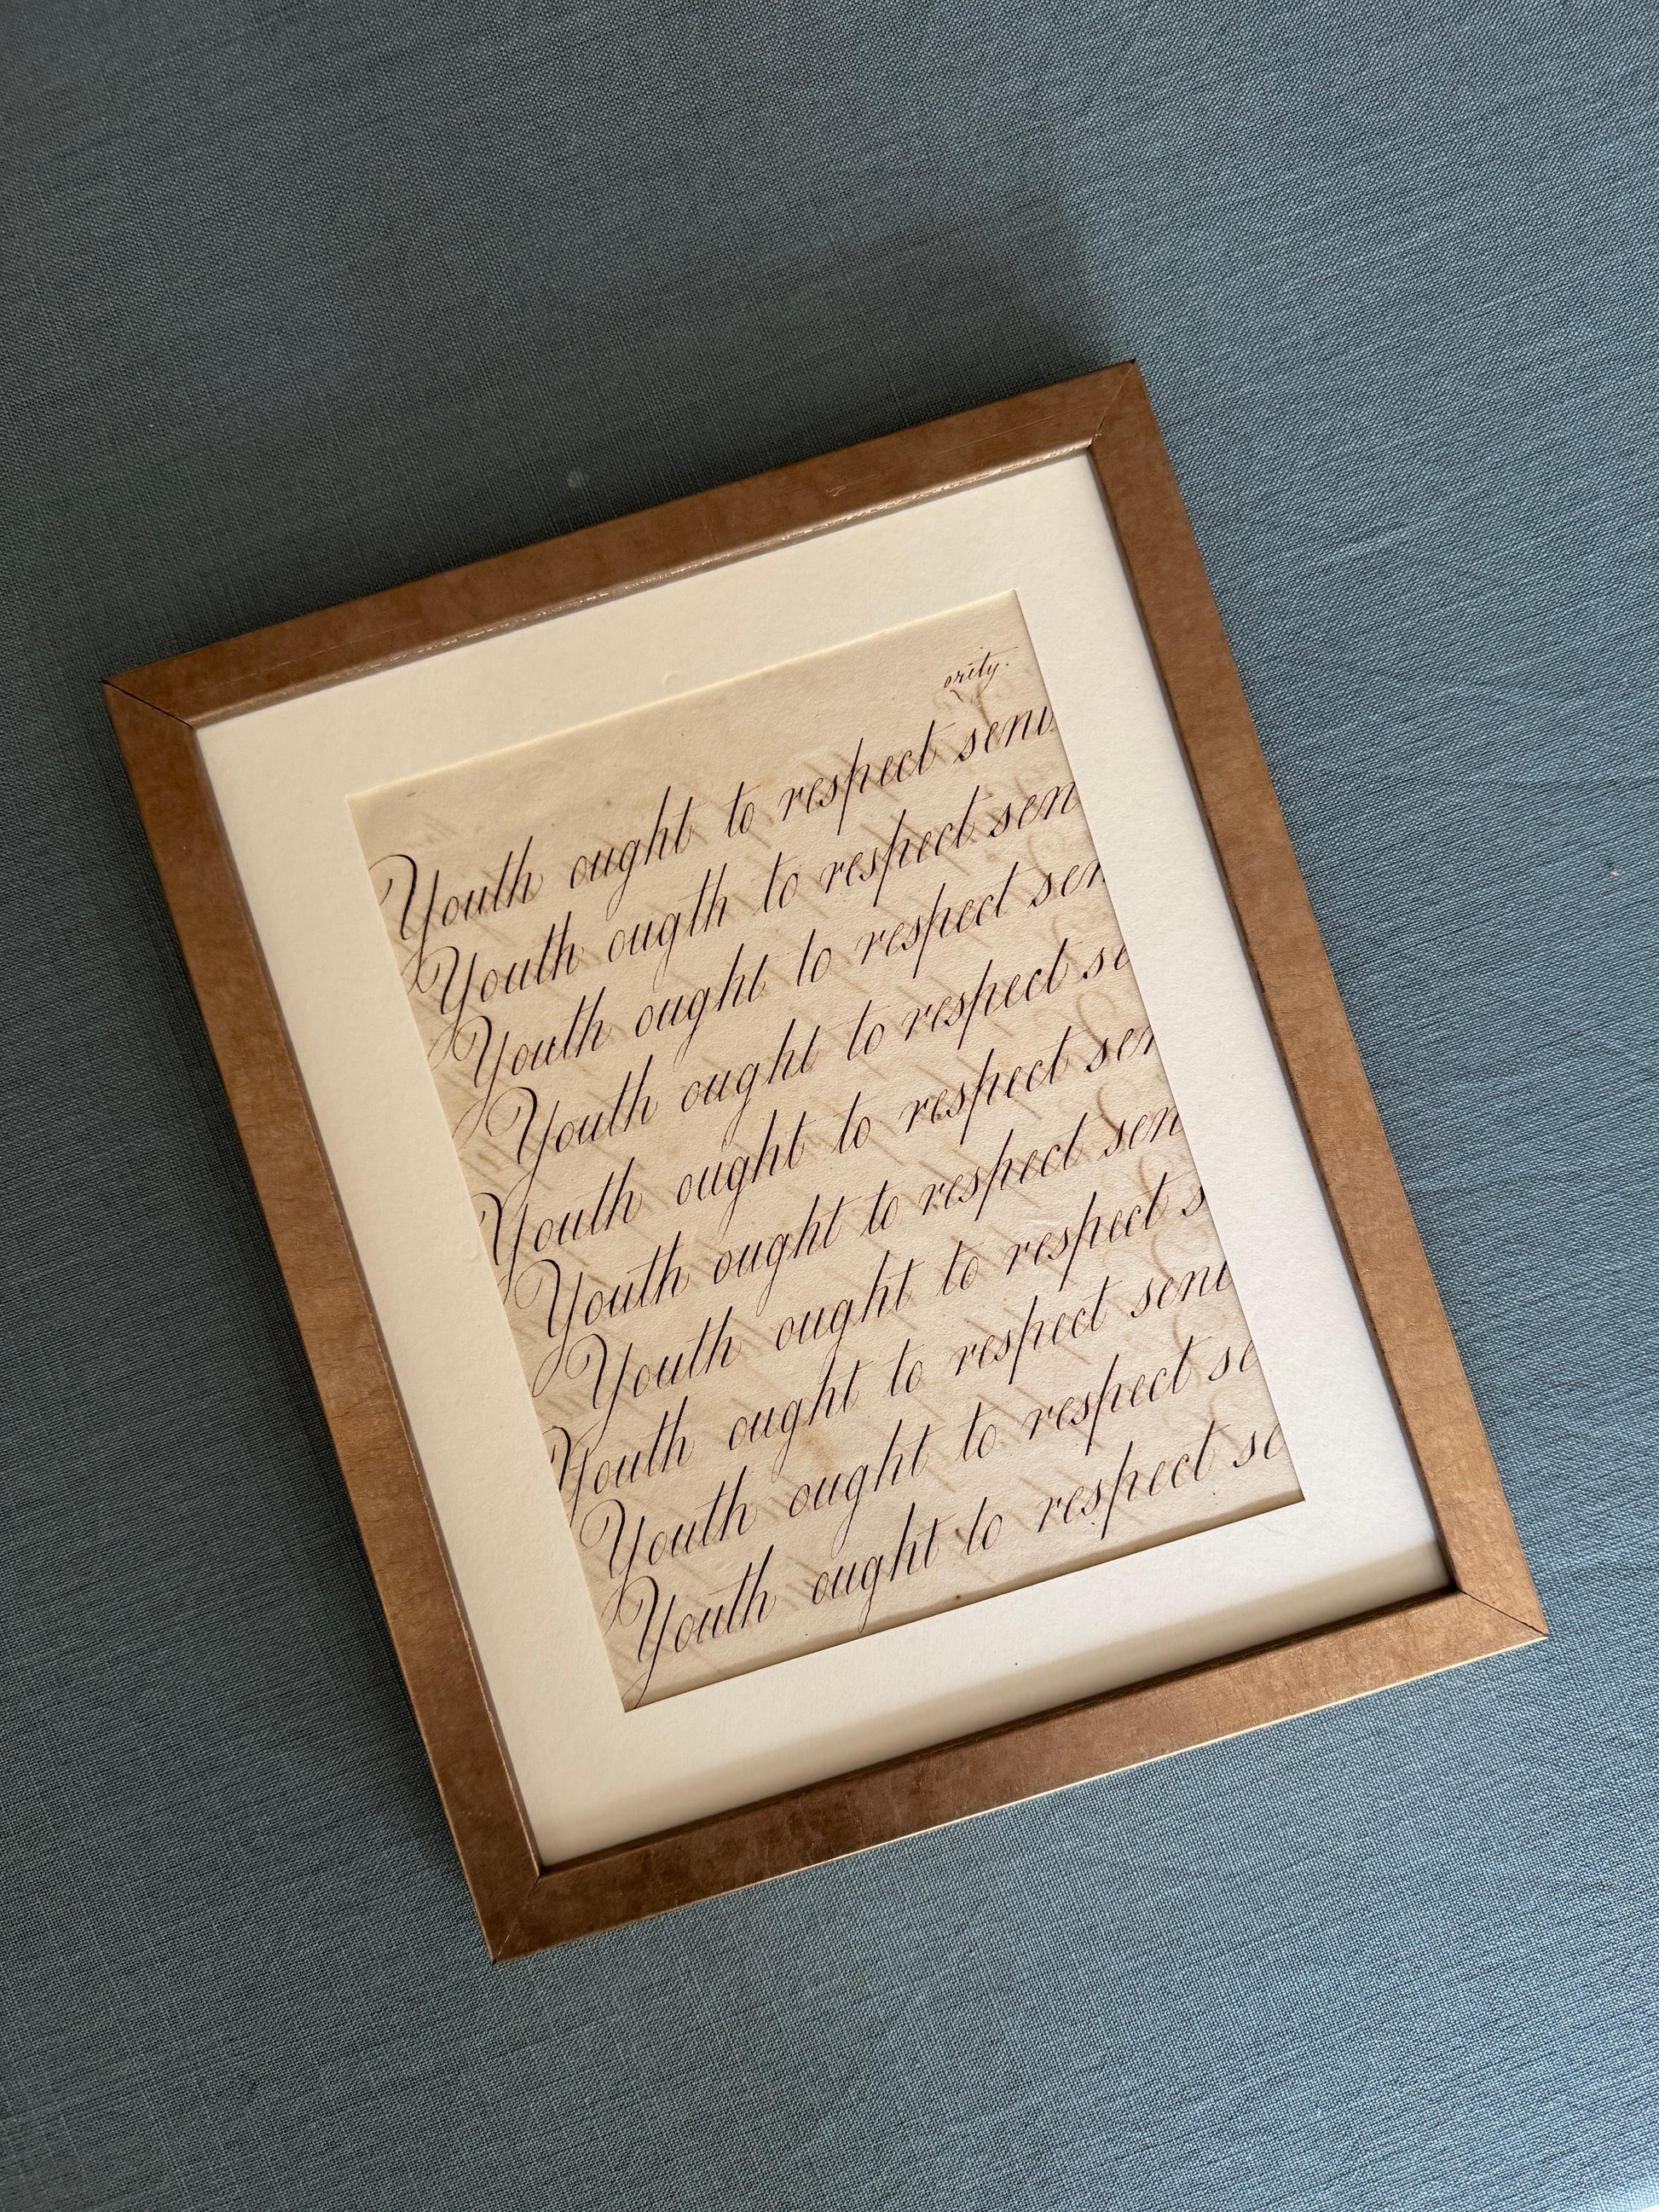 ority.
Youth ought to respect seni
Youth ougth to respect sen
Youth ought to respect sen
Youth ought to respect se
Youth ought to respect sen
Youth ought to respect sen
Youth ought to respect s
Youth ought to respect seni
Youth ought to respect se
Youth ought to respect se